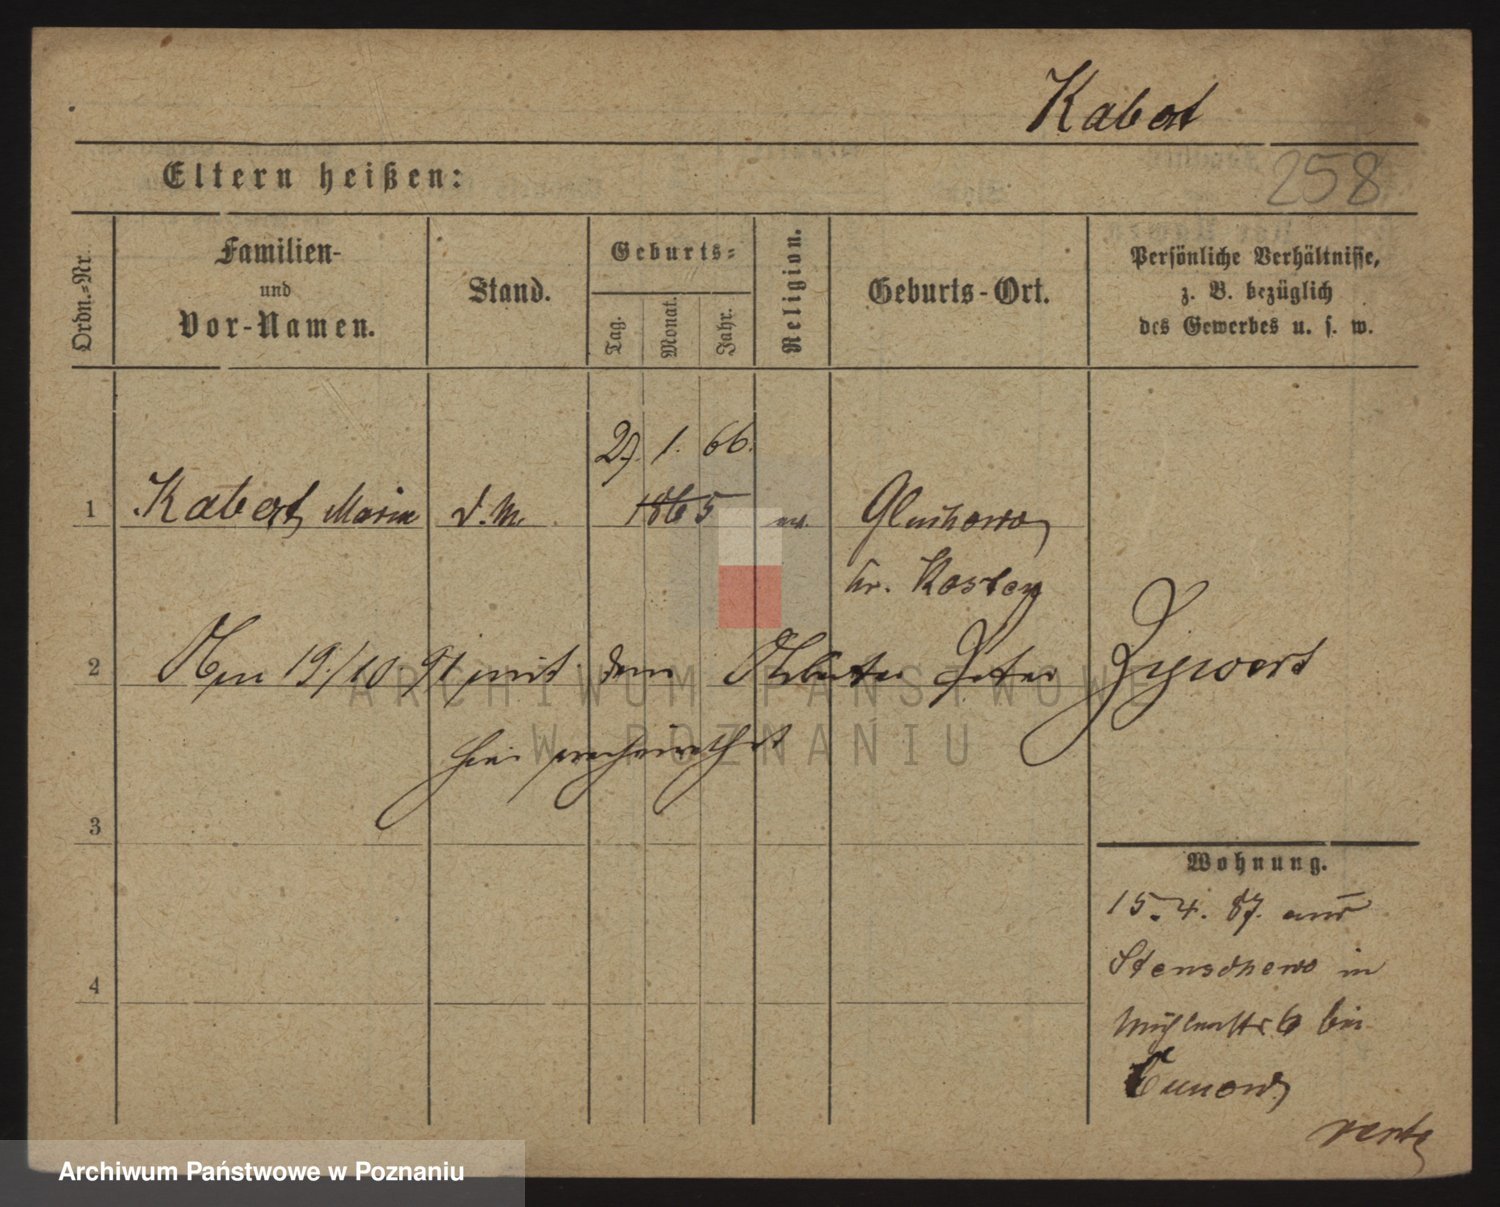 Kabat
258
Eltern heißen:
Ordn.-Nr.
Familien-
und
Vor-Namen.
Stand.
Geburts-
Tag.
Monat.
Jahr.
Religion.
Geburts-Ort.
Persönliche Verhältnisse,
z. B. bezüglich
des Gewerbes u. s. w.
1. 66.
1 Kabat, Marie d. M. 1865
Kr. Kosten
2 19/10 91 mit dem Arbeiter Peter Zywert
hier verheirathet
3
4
Wohnung.
15. 4. 87. aus
Stenschewo in
Mühlenstr 6 bei
Cunow,
verte
ARCHIWUM PAŃSTWOWE
W POZNANIU
Archiwum Państwowe w Poznaniu